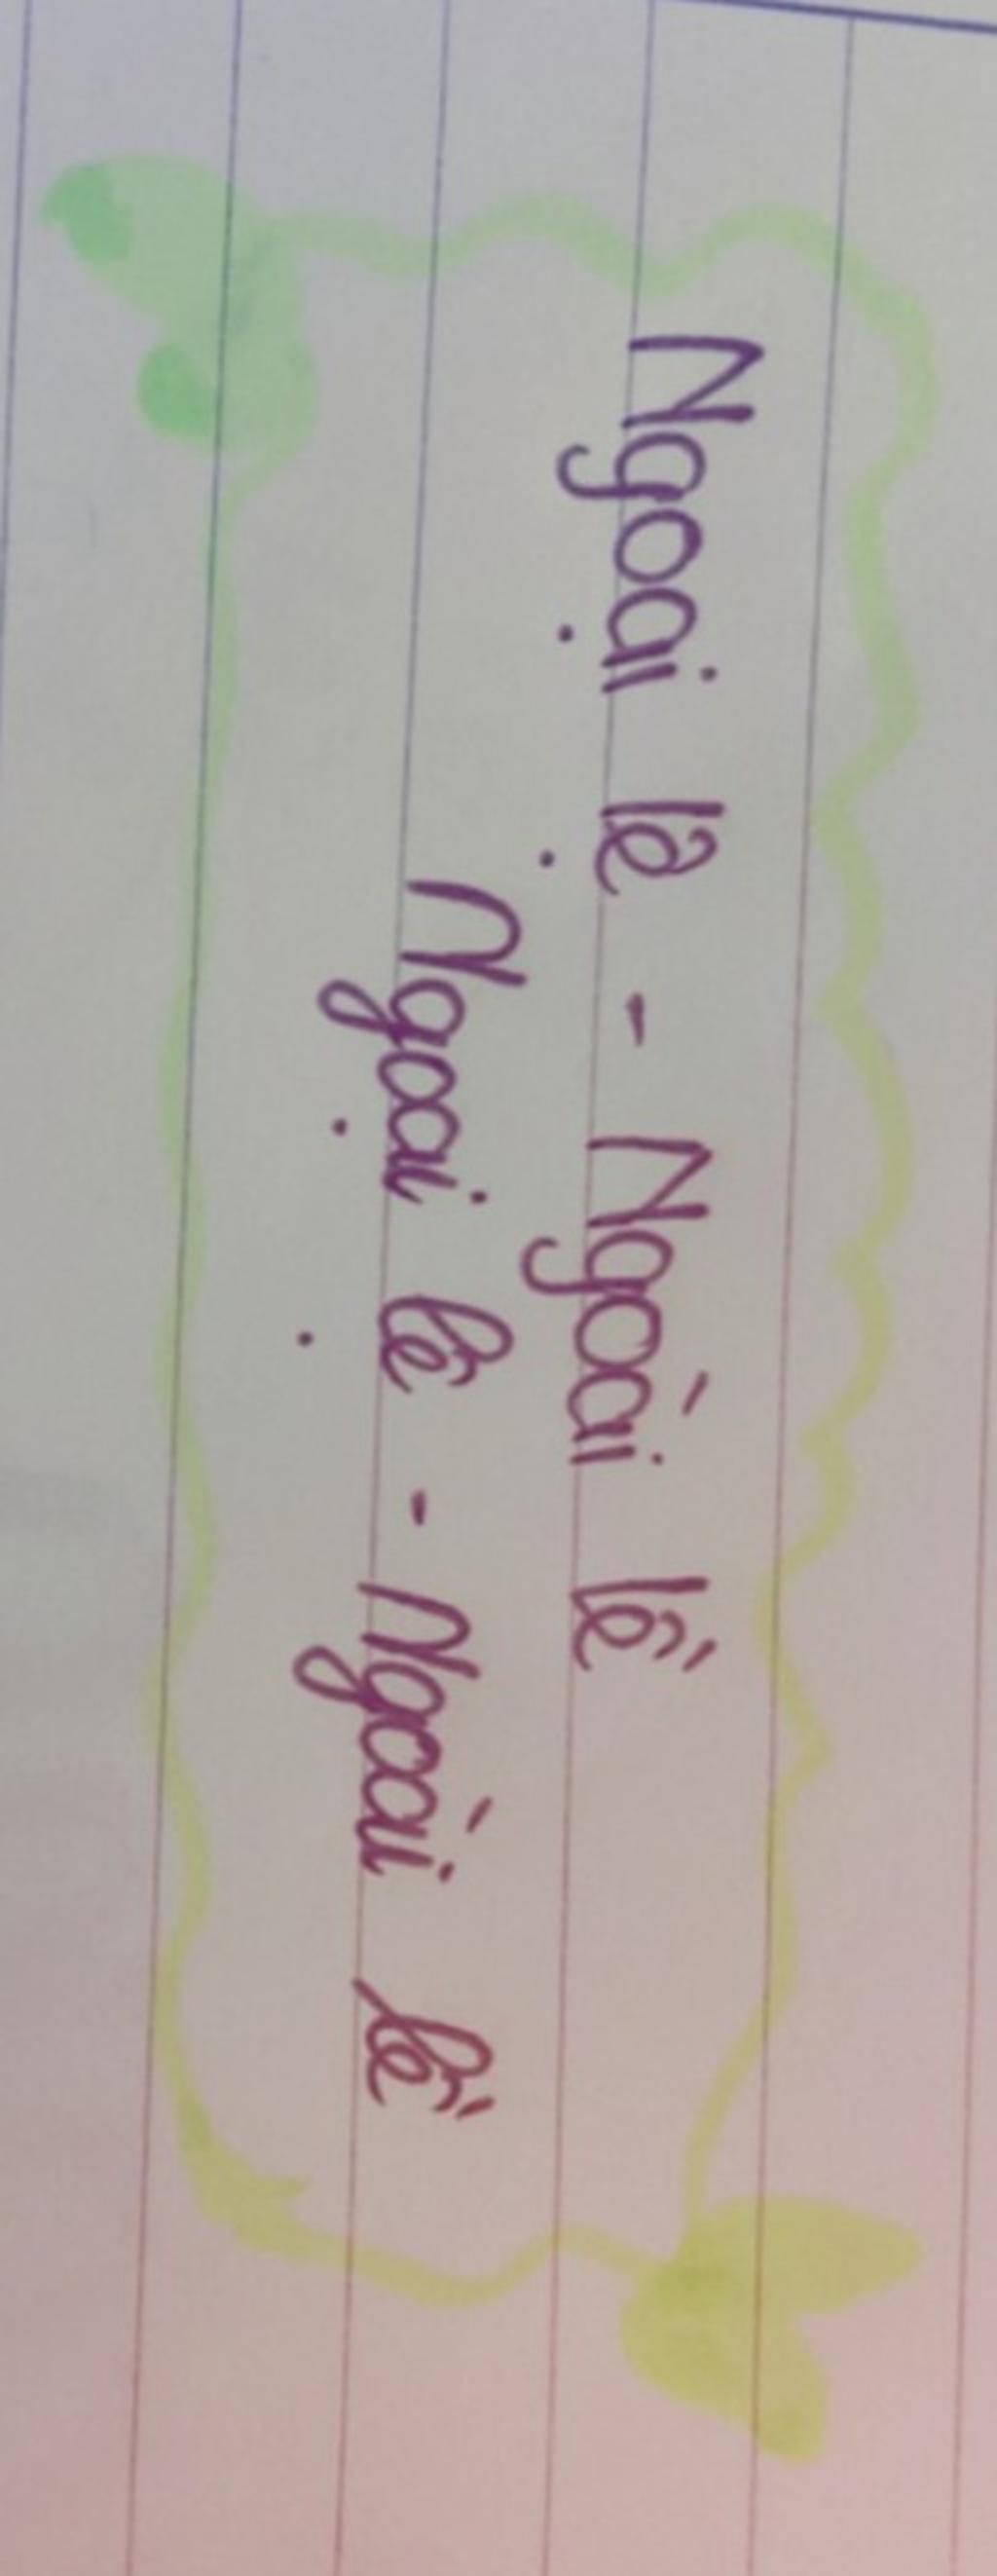 Ngoại lệ - Ngoài lế
Ngoại lệ - Ngoài lế